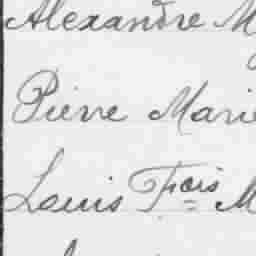 Alexandre M
Pierre Marie
Louis Frois M